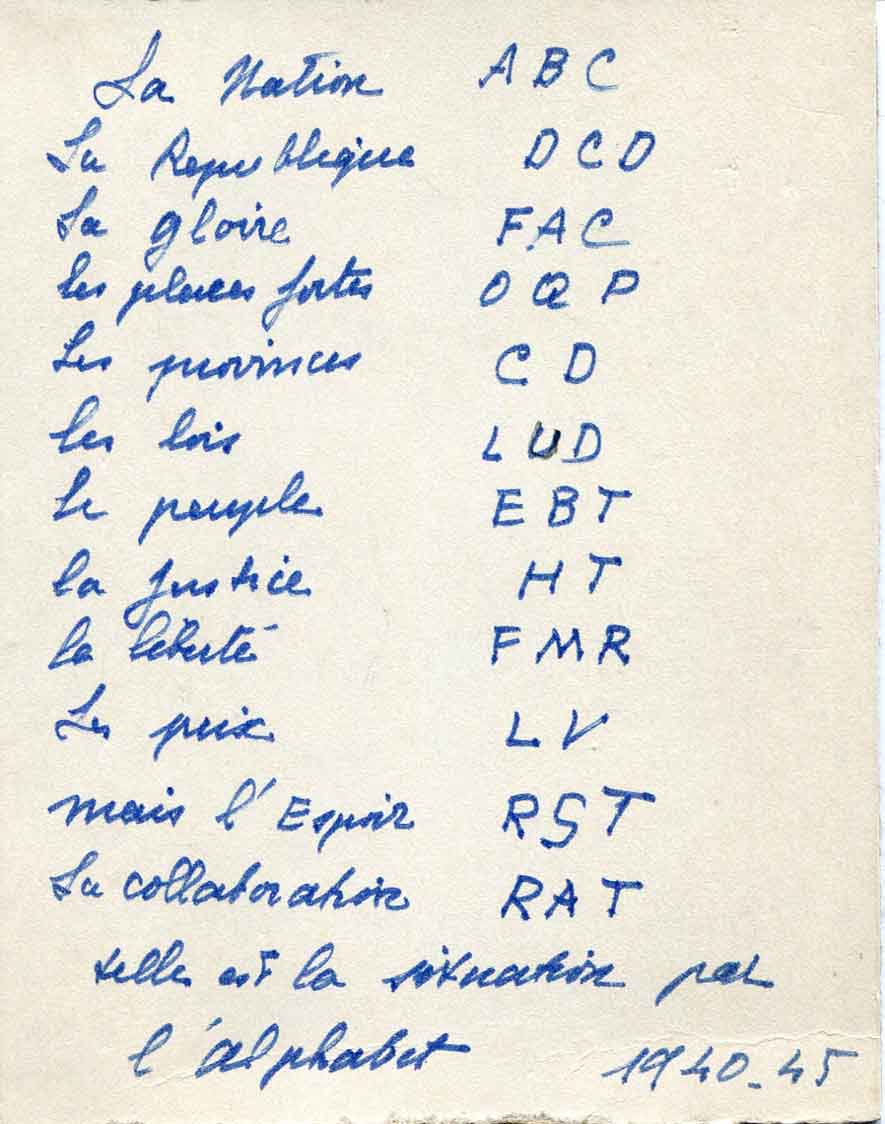 La Nation ABC
La Republique DCD
La gloire FAC
les places fortes OQP
Les provinces CD
les lois LUD
Le peuple EBT
la justice HT
la liberté FMR
Les prix LV
mais l'Espoir RST
La collaboration RAT
telle est la situation par
l'alphabet 1940-45